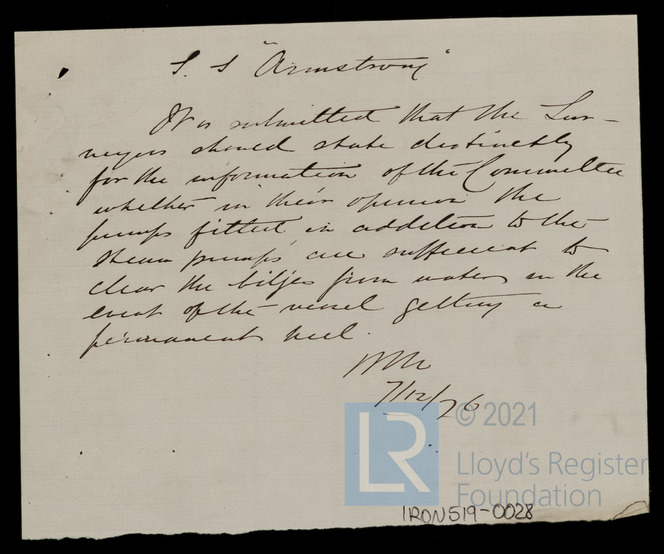 S. S "Armstrong"
It is submitted that the Sur-
veyors should state distinctly
for the information of the Committee
whether in their opinion the
pumps fitted in addition to the
steam pumps are sufficient to
clear the bilges from water in the
event of the vessel getting a
permanent heel.
7/12/76
LR
© 2021
Lloyd's Register
Foundation
IRON519-0028